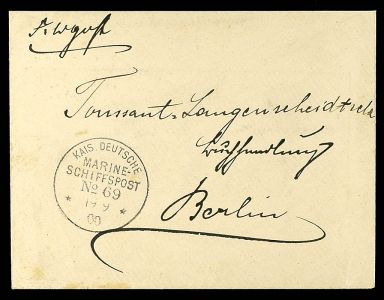 Toussaint-Langenscheidtsche
Buchhandlung
Berlin
KAIS. DEUTSCHE
MARINE-
SCHIFFSPOST
No 69
19 9
* *
00